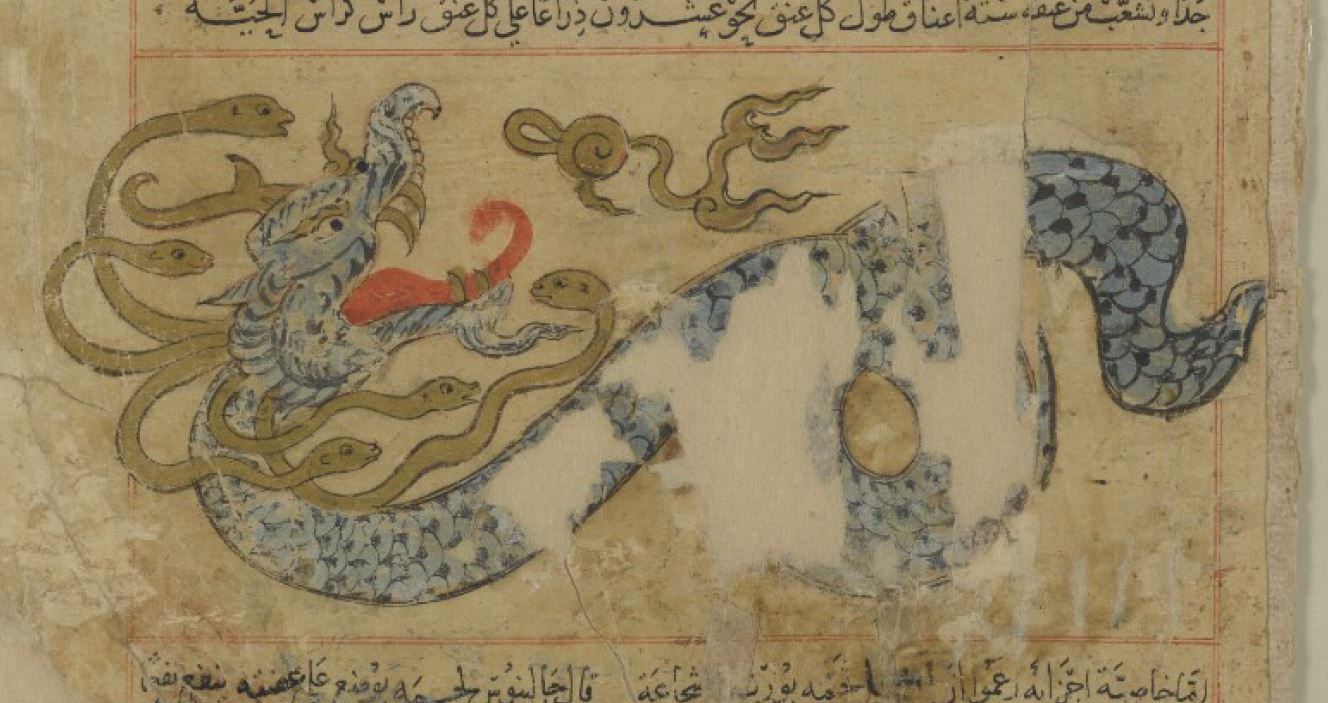 جدا وتشعب من عنقه ستة اعناق طول كل عنق نحو عشرون ذراعا على كل عنق راس كراس الحية
اما خاصية اجزائه زعموا ان لحمه يورث شجاعة قال جالينوس لحمه يوضع على عضته ينفع نفعا